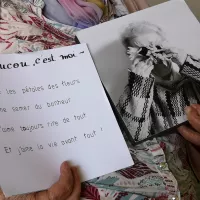 oucou, c'est moi -
les pétales des fleurs
me semer du bonheur
aime toujours rire de tout
Et j'aime la vie avant tout !